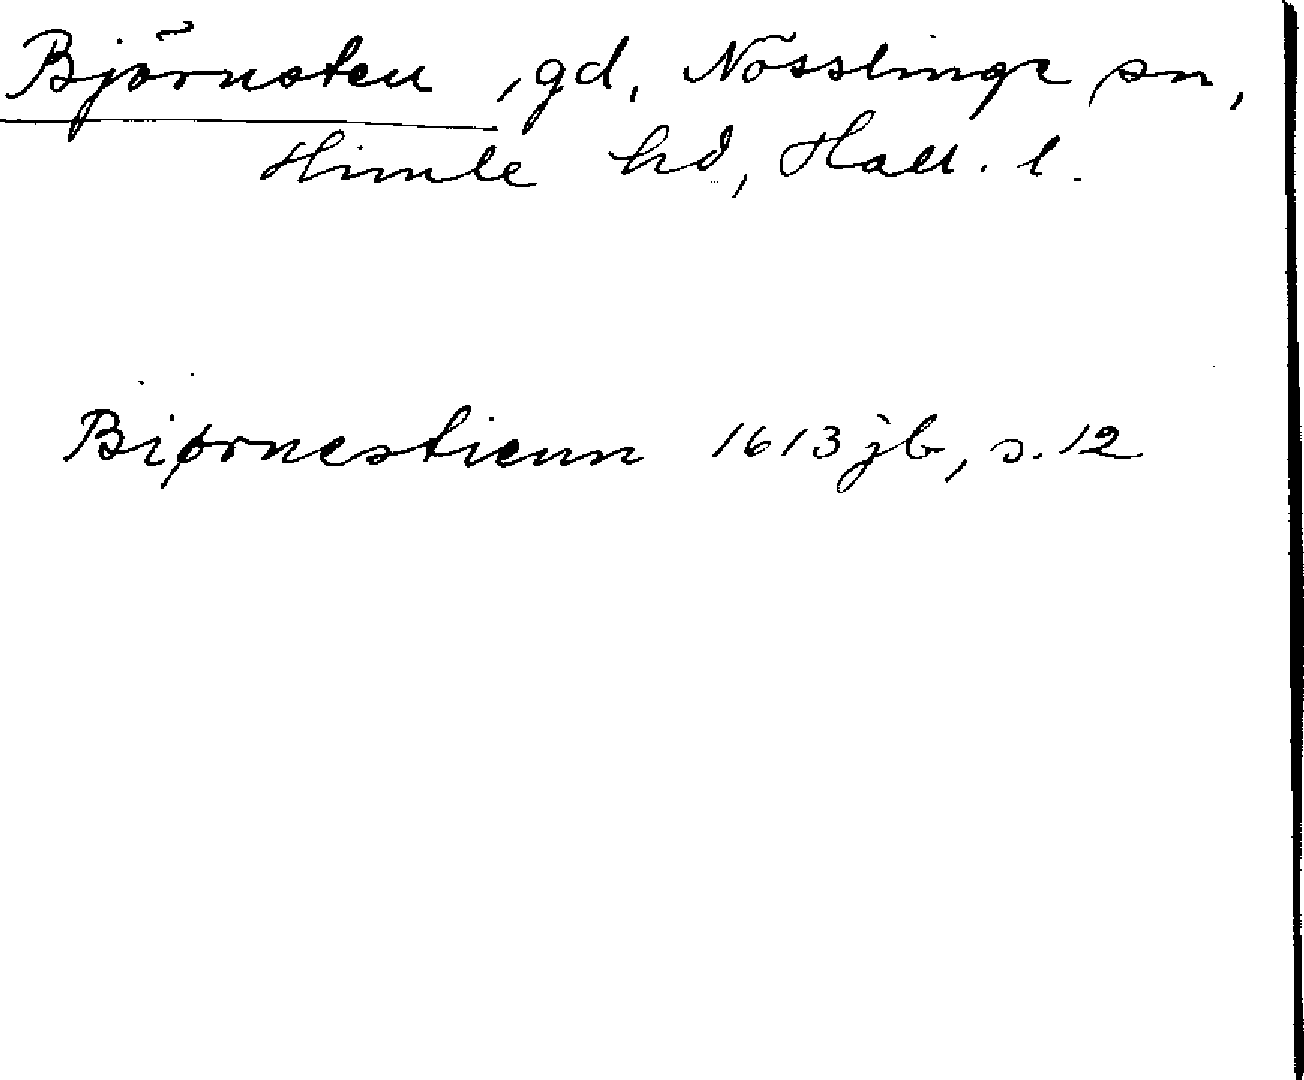 Björnsten, gd, Nösslinge sn,
Himle hd, Hall. l.
Biørnestienn 1613 jb, s. 12